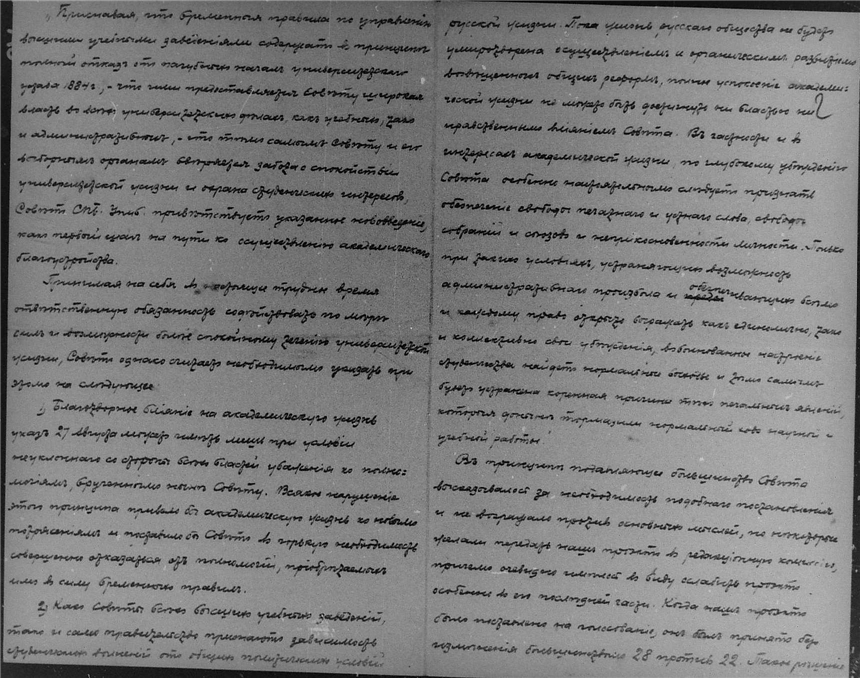 „Признавая, что временныя правила по управленію
высшими учебными заведеніями содержатъ въ принципѣ
полный отказъ отъ пагубныхъ началъ университетскаго
устава 1884 г., – что ими предоставляется Совѣту широкая
власть во всѣхъ университетскихъ дѣлахъ, какъ учебныхъ, такъ
и административныхъ, – что тѣмъ самымъ Совѣту и его
выборнымъ органамъ ввѣряется забота о спокойствіи
университетской жизни и охрана студенческихъ интересовъ,
Совѣтъ СПБ. Унив. привѣтствуетъ указанное нововведеніе,
какъ первый шагъ на пути къ осуществленію академическаго
благоустройства.
Принимая на себя въ настоящее трудное время
отвѣтственную обязанность содѣйствовать по мѣрѣ
силъ и возможности болѣе спокойному теченію университетской
жизни, Совѣтъ однако считаетъ необходимымъ указать при
этомъ на слѣдующее
1) Благотворное вліяніе на академическую жизнь
указъ 27 Августа можетъ имѣть лишь при условіи
неуклоннаго со стороны всѣхъ властей уваженія къ полно-
мочіямъ, врученнымъ нынѣ Совѣту. Всякое нарушеніе
этого принципа привело бы академическую жизнь къ новымъ
потрясеніямъ и поставило бы Совѣтъ въ горькую необходимость
совершенно отказаться отъ полномочій, пріобрѣтаемыхъ
имъ въ силу временныхъ правилъ.
2) Какъ Совѣты всѣхъ высшихъ учебныхъ заведеній,
такъ и само правительство признаютъ зависимость
студенческихъ волненій отъ общихъ политическихъ условій
русской жизни. Пока жизнь русскаго общества не будетъ
умиротворена осуществленіемъ и органическимъ развитіемъ
возвѣщенныхъ общихъ реформъ, полное успокоеніе академи-
ческой жизни не можетъ быть достигнуто ни властью ни
нравственнымъ вліяніемъ Совѣта. Въ частности и въ
интересахъ академической жизни, по глубокому убѣжденію
Совѣта особенно настоятельнымъ слѣдуетъ признать
обезпеченіе свободы печатнаго и устнаго слова, свободы
собраній и союзовъ и неприкосновенности личности. Только
при такихъ условіяхъ, устраняющихъ возможность
административнаго произвола и обезпечивающихъ всѣмъ
и каждому право открыто выражать какъ единолично, такъ
и коллективно свои убѣжденія, взволнованное настроеніе
студенчества найдетъ нормальные исходы и тѣмъ самымъ
будетъ устранена коренная причина тѣхъ печальныхъ явленій,
которыя донынѣ тормазили нормальный ходъ научной и
учебной работы
Въ принципѣ подавляющее большинство Совѣта
высказывалось за необходимость подобнаго постановленія
и не возражало противъ основныхъ мыслей, но нѣкоторые
желали передать нашъ проэктъ въ редакціонную комиссію,
причемъ очевидно имѣлось въ виду ослабить проэктъ
особенно въ его послѣдней части. Когда нашъ проэктъ
былъ поставленъ на голосованіе, онъ былъ принятъ безъ
измѣненія большинствомъ 28 противъ 22. Такое рѣшеніе